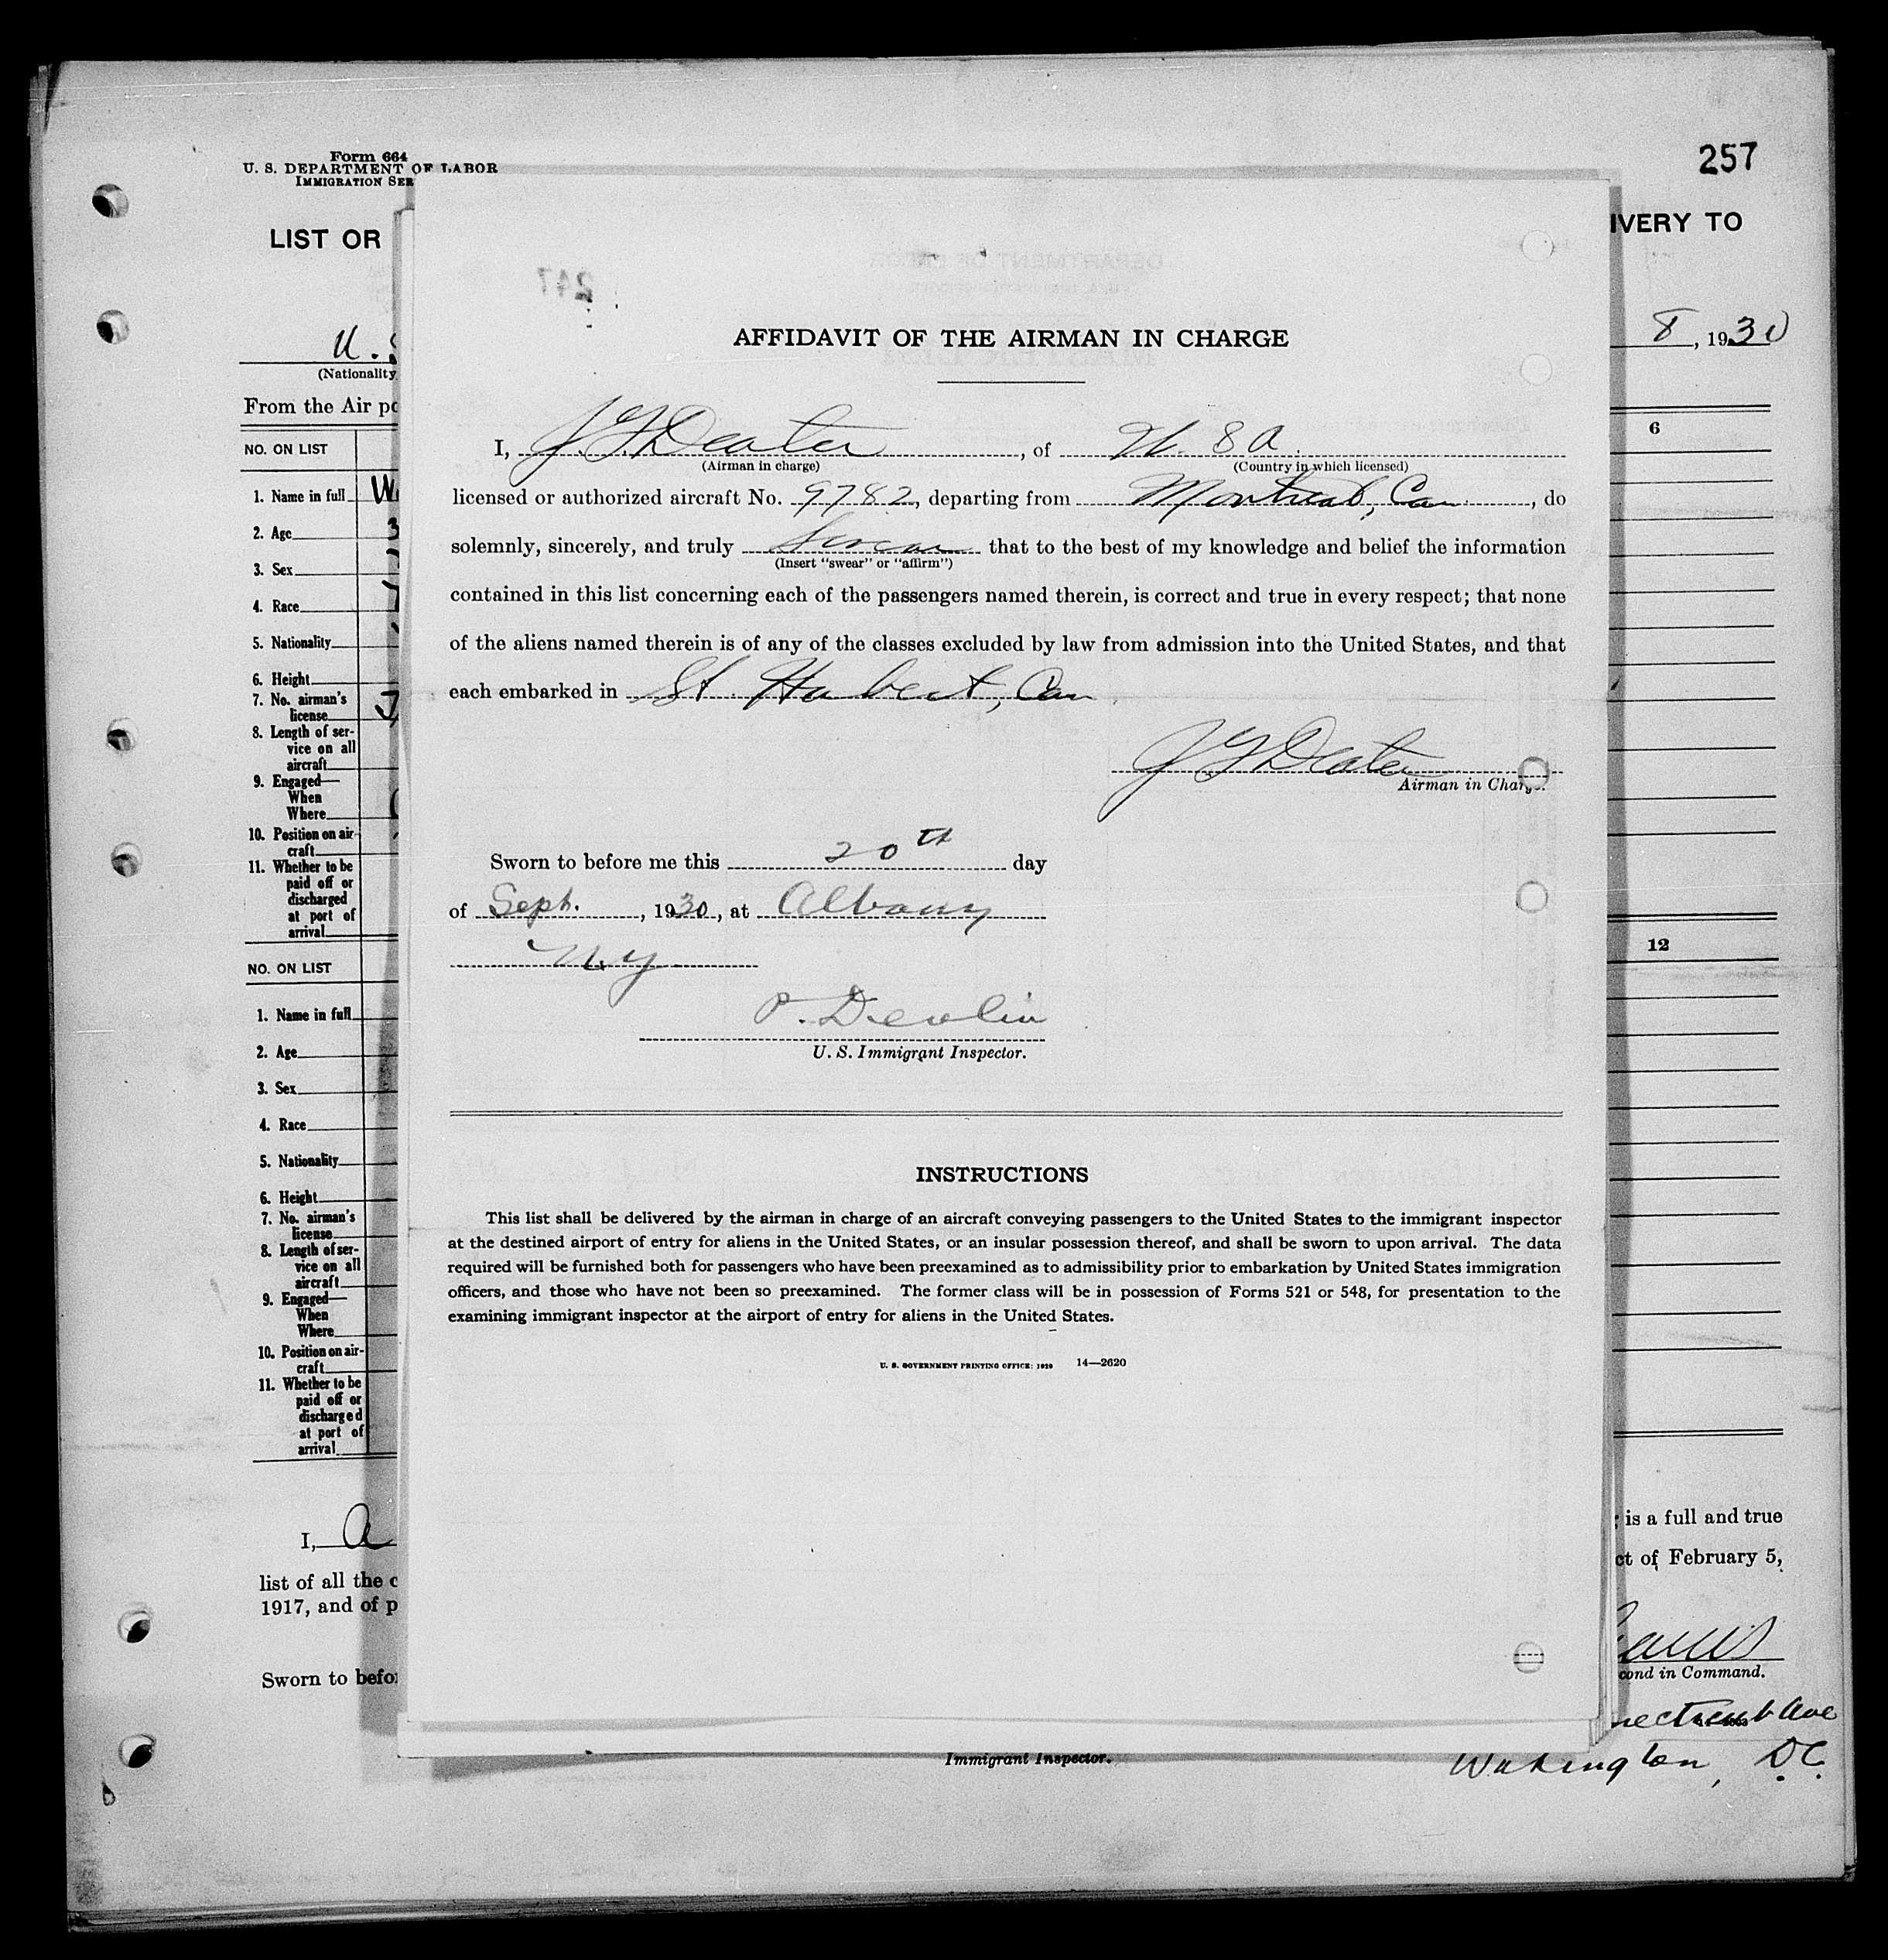 Form 664
U. S. DEPARTMENT OF LABOR
IMMIGRATION SER
257
LIST OR
IVERY TO
U. S
8, 1930
(Nationality
From the Air po
NO. ON LIST
6
1. Name in full
2. Age
3. Sex
4. Race
5. Nationality
6. Height
7. No. airman's
license
8. Length of ser-
vice on all
aircraft
9. Engaged—
When
Where
10. Position on air-
craft
11. Whether to be
paid off or
discharged
at port of
arrival
NO. ON LIST
12
1. Name in full
2. Age
3. Sex
4. Race
5. Nationality
6. Height
7. No. airman's
license
8. Length of ser-
vice on all
aircraft
9. Engaged—
When
Where
10. Position on air-
craft
11. Whether to be
paid off or
discharged
at port of
arrival
I, A
is a full and true
list of all the c
ct of February 5,
1917, and of p
Sworn to befor
cond in Command.
necticut Ave
Washington, D.C.
Immigrant Inspector.
247
AFFIDAVIT OF THE AIRMAN IN CHARGE
I, J. G. Deater, of U. S. A.
(Airman in charge) (Country in which licensed)
licensed or authorized aircraft No. 9782, departing from Montreal, Can., do
solemnly, sincerely, and truly swear that to the best of my knowledge and belief the information
(Insert "swear" or "affirm")
contained in this list concerning each of the passengers named therein, is correct and true in every respect; that none
of the aliens named therein is of any of the classes excluded by law from admission into the United States, and that
each embarked in St. Hubert, Can
J G Deater
Airman in Charge.
Sworn to before me this 20th day
of Sept., 1930, at Albany
N.Y
P. Devlin
U. S. Immigrant Inspector.
INSTRUCTIONS
This list shall be delivered by the airman in charge of an aircraft conveying passengers to the United States to the immigrant inspector
at the destined airport of entry for aliens in the United States, or an insular possession thereof, and shall be sworn to upon arrival. The data
required will be furnished both for passengers who have been preexamined as to admissibility prior to embarkation by United States immigration
officers, and those who have not been so preexamined. The former class will be in possession of Forms 521 or 548, for presentation to the
examining immigrant inspector at the airport of entry for aliens in the United States.
U. S. GOVERNMENT PRINTING OFFICE: 1929 14—2620